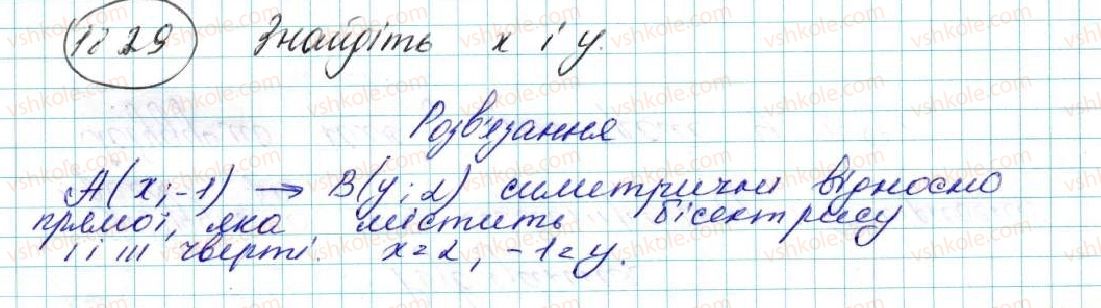 18 29 Знайдіть x і y.
Розв'язання
A(x; -1) → B(y; 2) симетричні відносно
прямої, яка містить бісектрису
I і III чверті. x=2, -1=y.